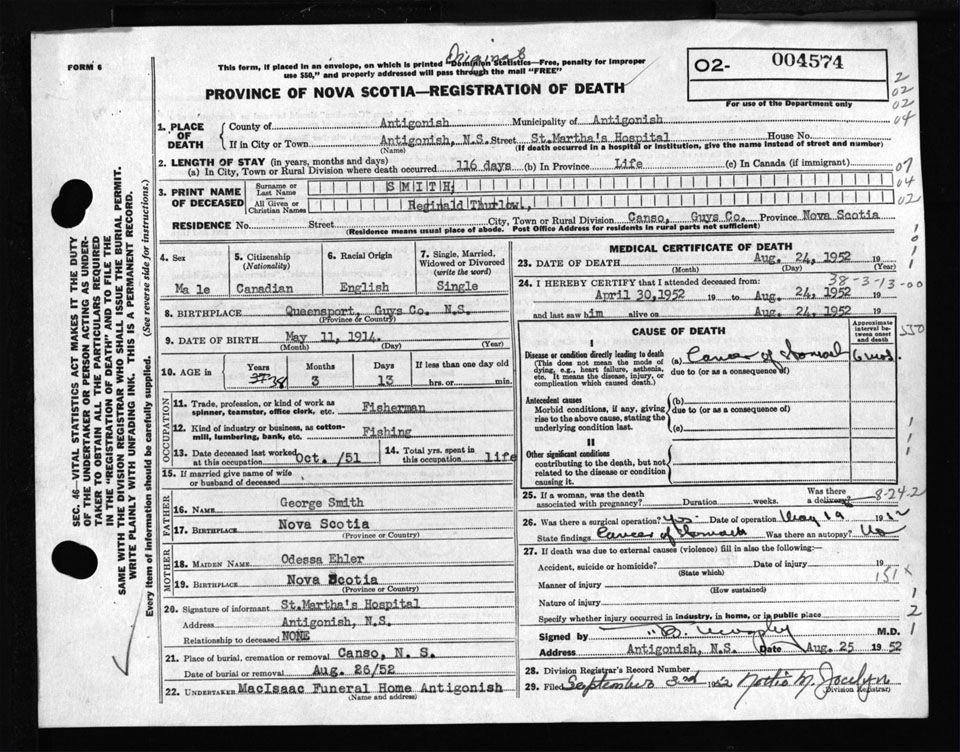 Original
FORM 6
This form, if placed in an envelope, on which is printed "Dominion Statistics—Free, penalty for improper
use $50," and properly addressed will pass through the mail "FREE"
PROVINCE OF NOVA SCOTIA—REGISTRATION OF DEATH
02- 004574
For use of the Department only
2
02
02
04
1. PLACE OF DEATH
County of Antigonish Municipality of Antigonish
If in City or Town Antigonish, N.S. Street St.Martha's Hospital House No.
(Name) (If death occurred in a hospital or institution, give the name instead of street and number)
2. LENGTH OF STAY (in years, months and days)
(a) In City, Town or Rural Division where death occurred 116 days (b) In Province Life (c) In Canada (if immigrant)
07
04
02
3. PRINT NAME OF DECEASED
Surname or Last Name SMITH,
All Given or Christian Names Reginald Thurlow.,
RESIDENCE No. Street City, Town or Rural Division Canso, Guys Co. Province Nova Scotia
(Residence means usual place of abode. Post Office Address for residents in rural parts not sufficient)
4. Sex
Male
5. Citizenship
(Nationality)
Canadian
6. Racial Origin
English
7. Single, Married,
Widowed or Divorced
(write the word)
Single
8. BIRTHPLACE Queensport, Guys Co. N.S.
(Province or Country)
9. DATE OF BIRTH May 11, 1914.
(Month) (Day) (Year)
10. AGE in
Years Months Days If less than one day
37 38 3 13 hrs. or min.
OCCUPATION
11. Trade, profession, or kind of work as
spinner, teamster, office clerk, etc. Fisherman
12. Kind of industry or business, as cotton-
mill, lumbering, bank, etc. Fishing
13. Date deceased last worked
at this occupation Oct. /51
14. Total yrs. spent in
this occupation life
15. If married give name of wife
or husband of deceased
FATHER
16. Name George Smith
17. Birthplace Nova Scotia
(Province or Country)
MOTHER
18. Maiden Name Odessa Ehler
19. Birthplace Nova Scotia
(Province or Country)
20. Signature of informant St.Martha's Hospital
Address Antigonish, N.S.
Relationship to deceased NONE
21. Place of burial, cremation or removal Canso, N. S.
Date of burial or removal Aug. 26/52
22. Undertaker MacIsaac Funeral Home Antigonish
(Name and address)
MEDICAL CERTIFICATE OF DEATH
23. DATE OF DEATH Aug. 24, 1952 19
(Month) (Day) (Year)
38-3-13-00
24. I HEREBY CERTIFY that I attended deceased from:
April 30,1952 19 to Aug. 24, 1952 19
and last saw him alive on Aug. 24, 1952 19
CAUSE OF DEATH
Approximate
interval be-
tween onset
and death
550
I
Disease or condition directly leading to death
(This does not mean the mode of
dying, e.g., heart failure, asthenia,
etc. It means the disease, injury, or
complication which caused death.)
(a) Cancer of Stomach 6 mos.
due to (or as a consequence of)
Antecedent causes
Morbid conditions, if any, giving
rise to the above cause, stating the
underlying condition last.
(b)
due to (or as a consequence of)
(c)
II
Other significant conditions
contributing to the death, but not
related to the disease or condition
causing it.
25. If a woman, was the death
associated with pregnancy? Duration weeks. Was there
a delivery?
8-24-2
26. Was there a surgical operation? Yes. Date of operation May 19 19
State findings Cancer of Stomach Was there an autopsy? No
27. If death was due to external causes (violence) fill in also the following:—
Accident, suicide or homicide? Date of injury 19
(State which)
151X
Manner of injury
(How sustained)
Nature of injury
Specify whether injury occurred in industry, in home, or in public place
2
1
Signed by Murphy M.D.
Address Antigonish, N.S. Date Aug. 25 19 52
28. Division Registrar's Record Number
29. Filed September 3rd 1952 M. Jocelyn
(Division Registrar)
SEC. 46—VITAL STATISTICS ACT MAKES IT THE DUTY
OF THE UNDERTAKER OR PERSON ACTING AS UNDER-
TAKER TO OBTAIN ALL THE PARTICULARS REQUIRED
IN THE "REGISTRATION OF DEATH" AND TO FILE THE
SAME WITH THE DIVISION REGISTRAR WHO SHALL ISSUE THE BURIAL PERMIT.
WRITE PLAINLY WITH UNFADING INK. THIS IS A PERMANENT RECORD.
Every item of information should be carefully supplied. (See reverse side for instructions.)